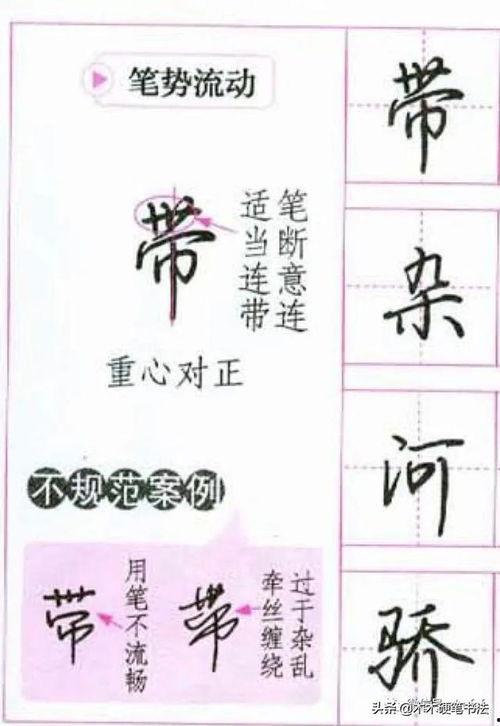 笔势流动
带
笔断意连
适当连带
重心对正
不规范案例
带
用笔不流畅
带
过于杂乱
牵丝缠绕
带
杂
河
骄
头条@木木硬笔书法